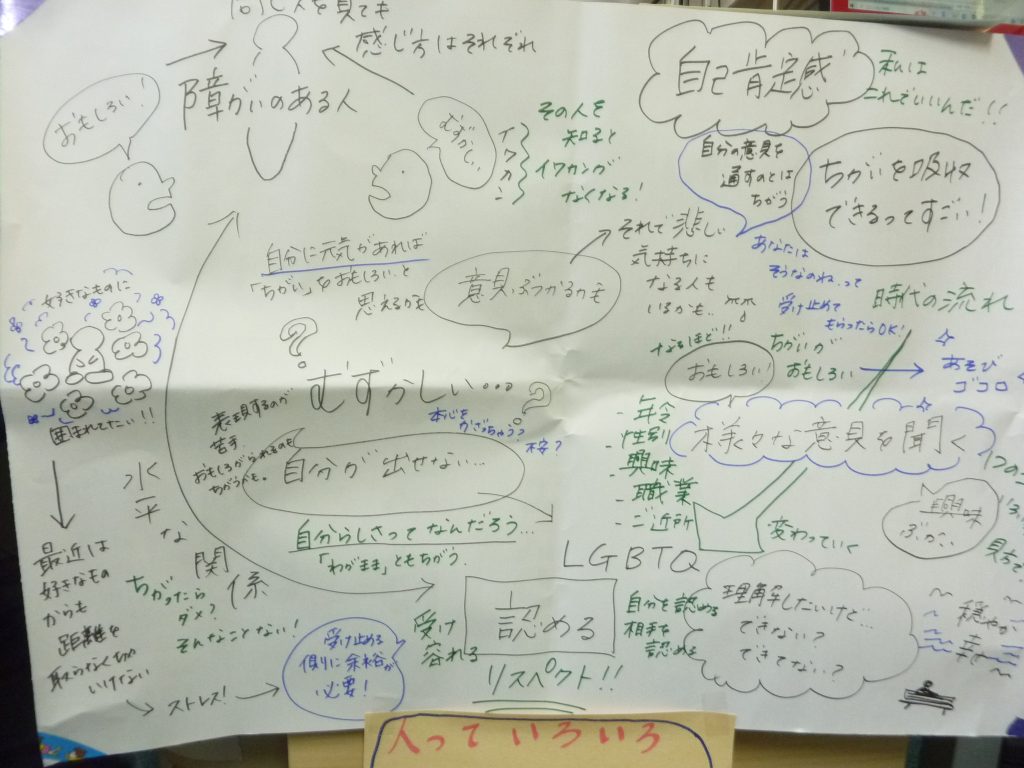 同じ人を見ても
感じ方はそれぞれ
障がいのある人
おもしろい！
むずかしい
イワカン
その人を
知ると
イワカンが
なくなる！
自己肯定感
私は
これでいいんだ！！
自分の意見を
通すのとは
ちがう
ちがいを吸収
できるってすごい！
自分に元気があれば
「ちがい」をおもしろいと
思えるかも
意見ぶつかるかも
それで悲しい
気持ちに
なる人も
いるかも..
あなたは
そうなのねって
受け止めて
もらったらOK！
時代の流れ
好きなものに
囲まれてたい！！
？
むずかしい...
？
なるほど！！
おもしろい！
ちがいが
おもしろい
あそび
ゴコロ
表現するのが
苦手
おもしろがられるのも
ちがうかも。
本心を
かざっちゃう？
不安？
自分が出せない...
- 年令
- 性別
- 興味
- 職業
- ご近所
様々な意見を聞く
興味
ぶかい
1つの
見ちて
水平な関係
自分らしさってなんだろう...
「わがまま」ともちがう.
LGBTQ
変わっていく
最近は
好きなもの
からも
距離を
取らなくちゃ
いけない
ストレス！
ちがったら
ダメ？
そんなことない！
受け止める
側りに余裕が
必要！
受け
容れる
認める
自分を認める
相手を
認める
リスペクト！！
理解したいけど...
できない？
できてない？
穏やか
幸せ
人っていろいろ